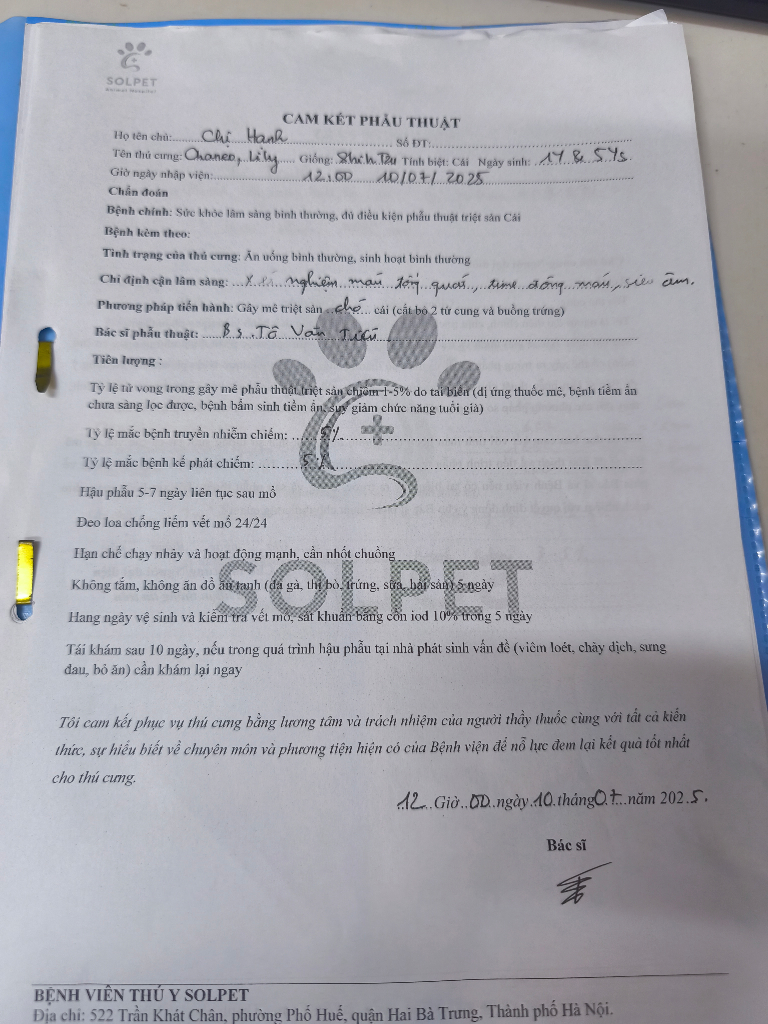 SOLPET
Animal Hospital
CAM KẾT PHẪU THUẬT
Họ tên chủ: Chị Hạnh Số ĐT:
Tên thú cưng: Chaneo, Lily Giống: Shih Tzu Tính biệt: Cái Ngày sinh: 1Y & 5Ys.
Giờ ngày nhập viện: 12:00 10/07/2025
Chẩn đoán
Bệnh chính: Sức khỏe lâm sàng bình thường, đủ điều kiện phẫu thuật triệt sản Cái
Bệnh kèm theo:
Tình trạng của thú cưng: Ăn uống bình thường, sinh hoạt bình thường
Chỉ định cận lâm sàng: Xét nghiệm máu tổng quát, time đông máu, siêu âm.
Phương pháp tiến hành: Gây mê triệt sản chó cái (cắt bỏ 2 tử cung và buồng trứng)
Bác sĩ phẫu thuật: Bs. Tô Văn
Tiên lượng :
Tỷ lệ tử vong trong gây mê phẫu thuật triệt sản chiếm 1-5% do tai biến (dị ứng thuốc mê, bệnh tiềm ẩn
chưa sàng lọc được, bệnh bẩm sinh tiềm ẩn, suy giảm chức năng tuổi già)
Tỷ lệ mắc bệnh truyền nhiễm chiếm: 5%
Tỷ lệ mắc bệnh kế phát chiếm: 5%
Hậu phẫu 5-7 ngày liên tục sau mổ
Đeo loa chống liếm vết mổ 24/24
Hạn chế chạy nhảy và hoạt động mạnh, cần nhốt chuồng
SOLPET
Không tắm, không ăn đồ ăn tanh (da gà, thịt bò, trứng, sữa, hải sản) 5 ngày
Hang ngày vệ sinh và kiểm tra vết mổ, sát khuẩn bằng cồn iod 10% trong 5 ngày
Tái khám sau 10 ngày, nếu trong quá trình hậu phẫu tại nhà phát sinh vấn đề (viêm loét, chảy dịch, sưng
đau, bỏ ăn) cần khám lại ngay
Tôi cam kết phục vụ thú cưng bằng lương tâm và trách nhiệm của người thầy thuốc cùng với tất cả kiến
thức, sự hiểu biết về chuyên môn và phương tiện hiện có của Bệnh viện để nỗ lực đem lại kết quả tốt nhất
cho thú cưng.
12 Giờ 00 ngày 10 tháng 07 năm 2025.
Bác sĩ
BỆNH VIÊN THÚ Y SOLPET
Địa chỉ: 522 Trần Khát Chân, phường Phố Huế, quận Hai Bà Trưng, Thành phố Hà Nội.